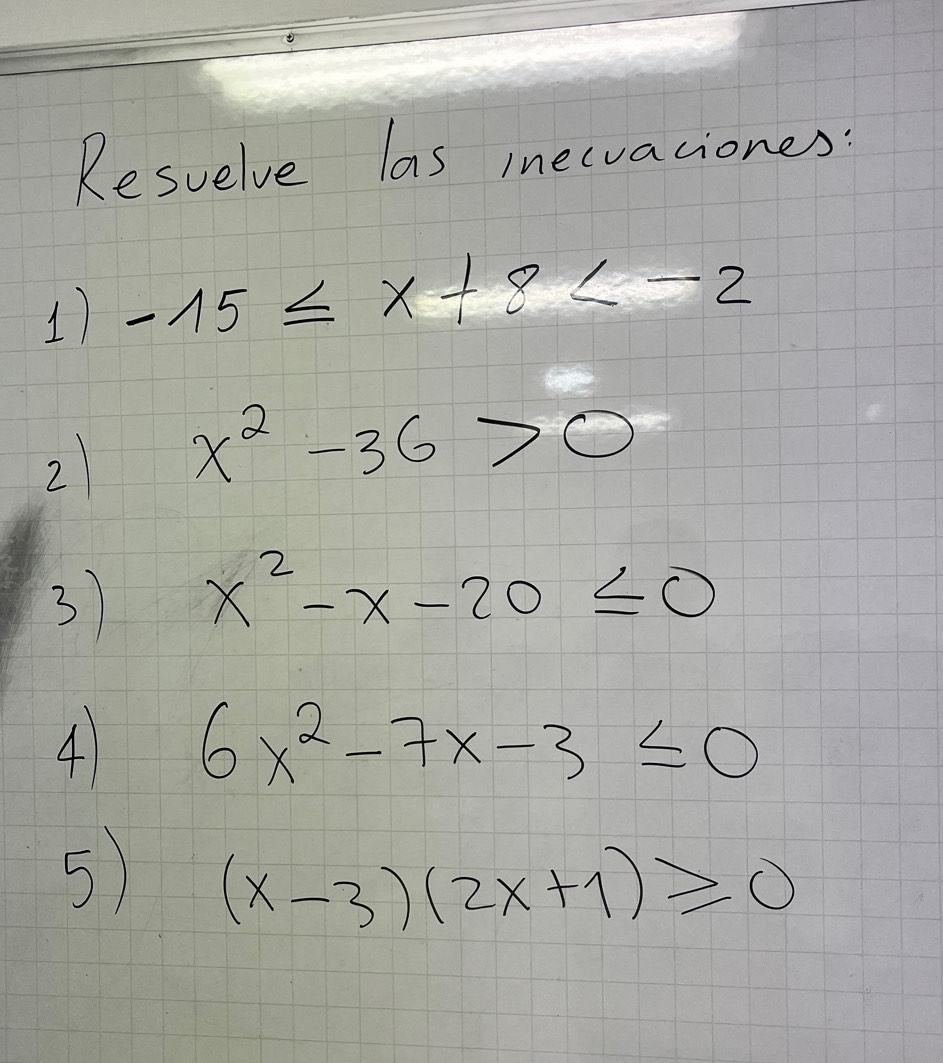 Resuelve las inecuaciones:
1) -15 ≤ x + 8 < -2
2) x² - 36 > 0
3) x² - x - 20 ≤ 0
4) 6x² - 7x - 3 ≤ 0
5) (x-3)(2x+1) ≥ 0